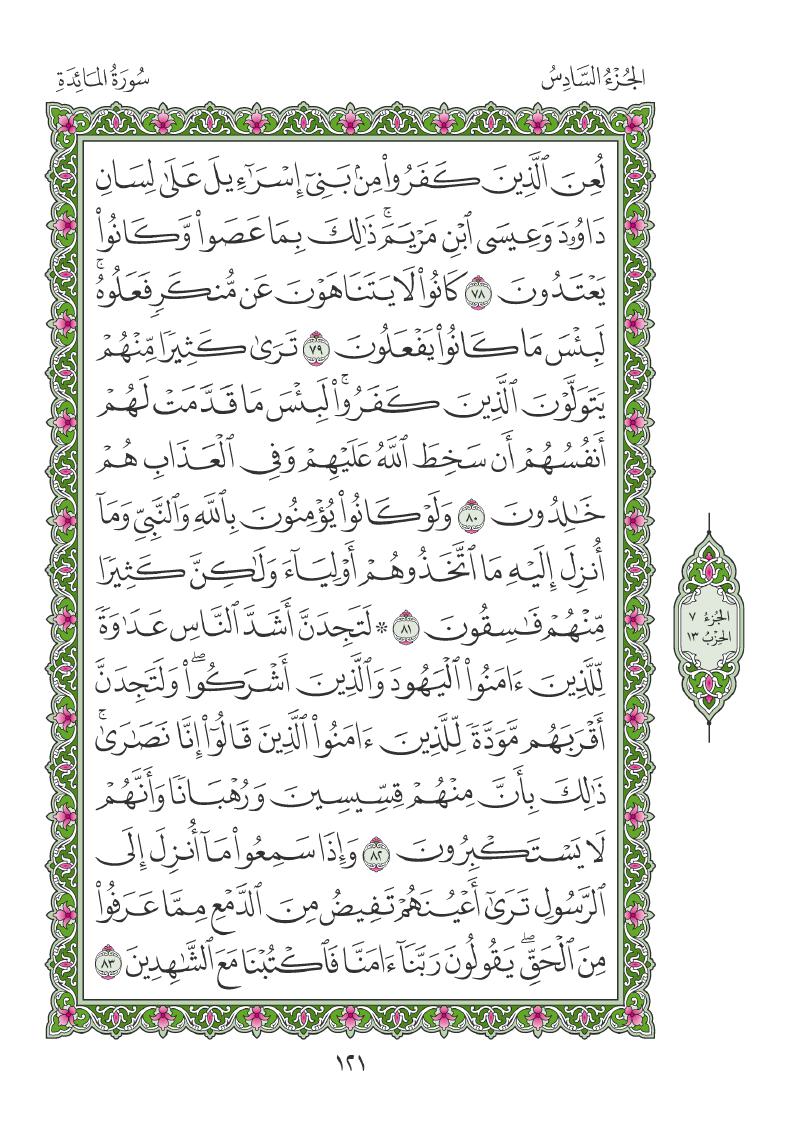 الجُزْءُ السَّادِسُ
سُورَةُ المَائِدَةِ
لُعِنَ ٱلَّذِينَ كَفَرُوا۟ مِنۢ بَنِىٓ إِسْرَٰٓءِيلَ عَلَىٰ لِسَانِ
دَاوُۥدَ وَعِيسَى ٱبْنِ مَرْيَمَ ۚ ذَٰلِكَ بِمَا عَصَوا۟ وَّكَانُوا۟
يَعْتَدُونَ ٧٨ كَانُوا۟ لَا يَتَنَاهَوْنَ عَن مُّنكَرٍ فَعَلُوهُ ۚ
لَبِئْسَ مَا كَانُوا۟ يَفْعَلُونَ ٧٩ تَرَىٰ كَثِيرًا مِّنْهُمْ
يَتَوَلَّوْنَ ٱلَّذِينَ كَفَرُوا۟ ۚ لَبِئْسَ مَا قَدَّمَتْ لَهُمْ
أَنفُسُهُمْ أَن سَخِطَ ٱللَّهُ عَلَيْهِمْ وَفِى ٱلْعَذَابِ هُمْ
خَٰلِدُونَ ٨٠ وَلَوْ كَانُوا۟ يُؤْمِنُونَ بِٱللَّهِ وَٱلنَّبِىِّ وَمَآ
أُنزِلَ إِلَيْهِ مَا ٱتَّخَذُوهُمْ أَوْلِيَآءَ وَلَٰكِنَّ كَثِيرًا
مِّنْهُمْ فَٰسِقُونَ ٨١ ۞ لَتَجِدَنَّ أَشَدَّ ٱلنَّاسِ عَدَٰوَةً
لِّلَّذِينَ ءَامَنُوا۟ ٱلْيَهُودَ وَٱلَّذِينَ أَشْرَكُوا۟ ۖ وَلَتَجِدَنَّ
أَقْرَبَهُم مَّوَدَّةً لِّلَّذِينَ ءَامَنُوا۟ ٱلَّذِينَ قَالُوٓا۟ إِنَّا نَصَٰرَىٰ ۚ
ذَٰلِكَ بِأَنَّ مِنْهُمْ قِسِّيسِينَ وَرُهْبَانًا وَأَنَّهُمْ
لَا يَسْتَكْبِرُونَ ٨٢ وَإِذَا سَمِعُوا۟ مَآ أُنزِلَ إِلَى
ٱلرَّسُولِ تَرَىٰٓ أَعْيُنَهُمْ تَفِيضُ مِنَ ٱلدَّمْعِ مِمَّا عَرَفُوا۟
مِنَ ٱلْحَقِّ ۖ يَقُولُونَ رَبَّنَآ ءَامَنَّا فَٱكْتُبْنَا مَعَ ٱلشَّٰهِدِينَ ٨٣
الجُزْءُ ٧
الحِزْبُ ١٣
١٢١